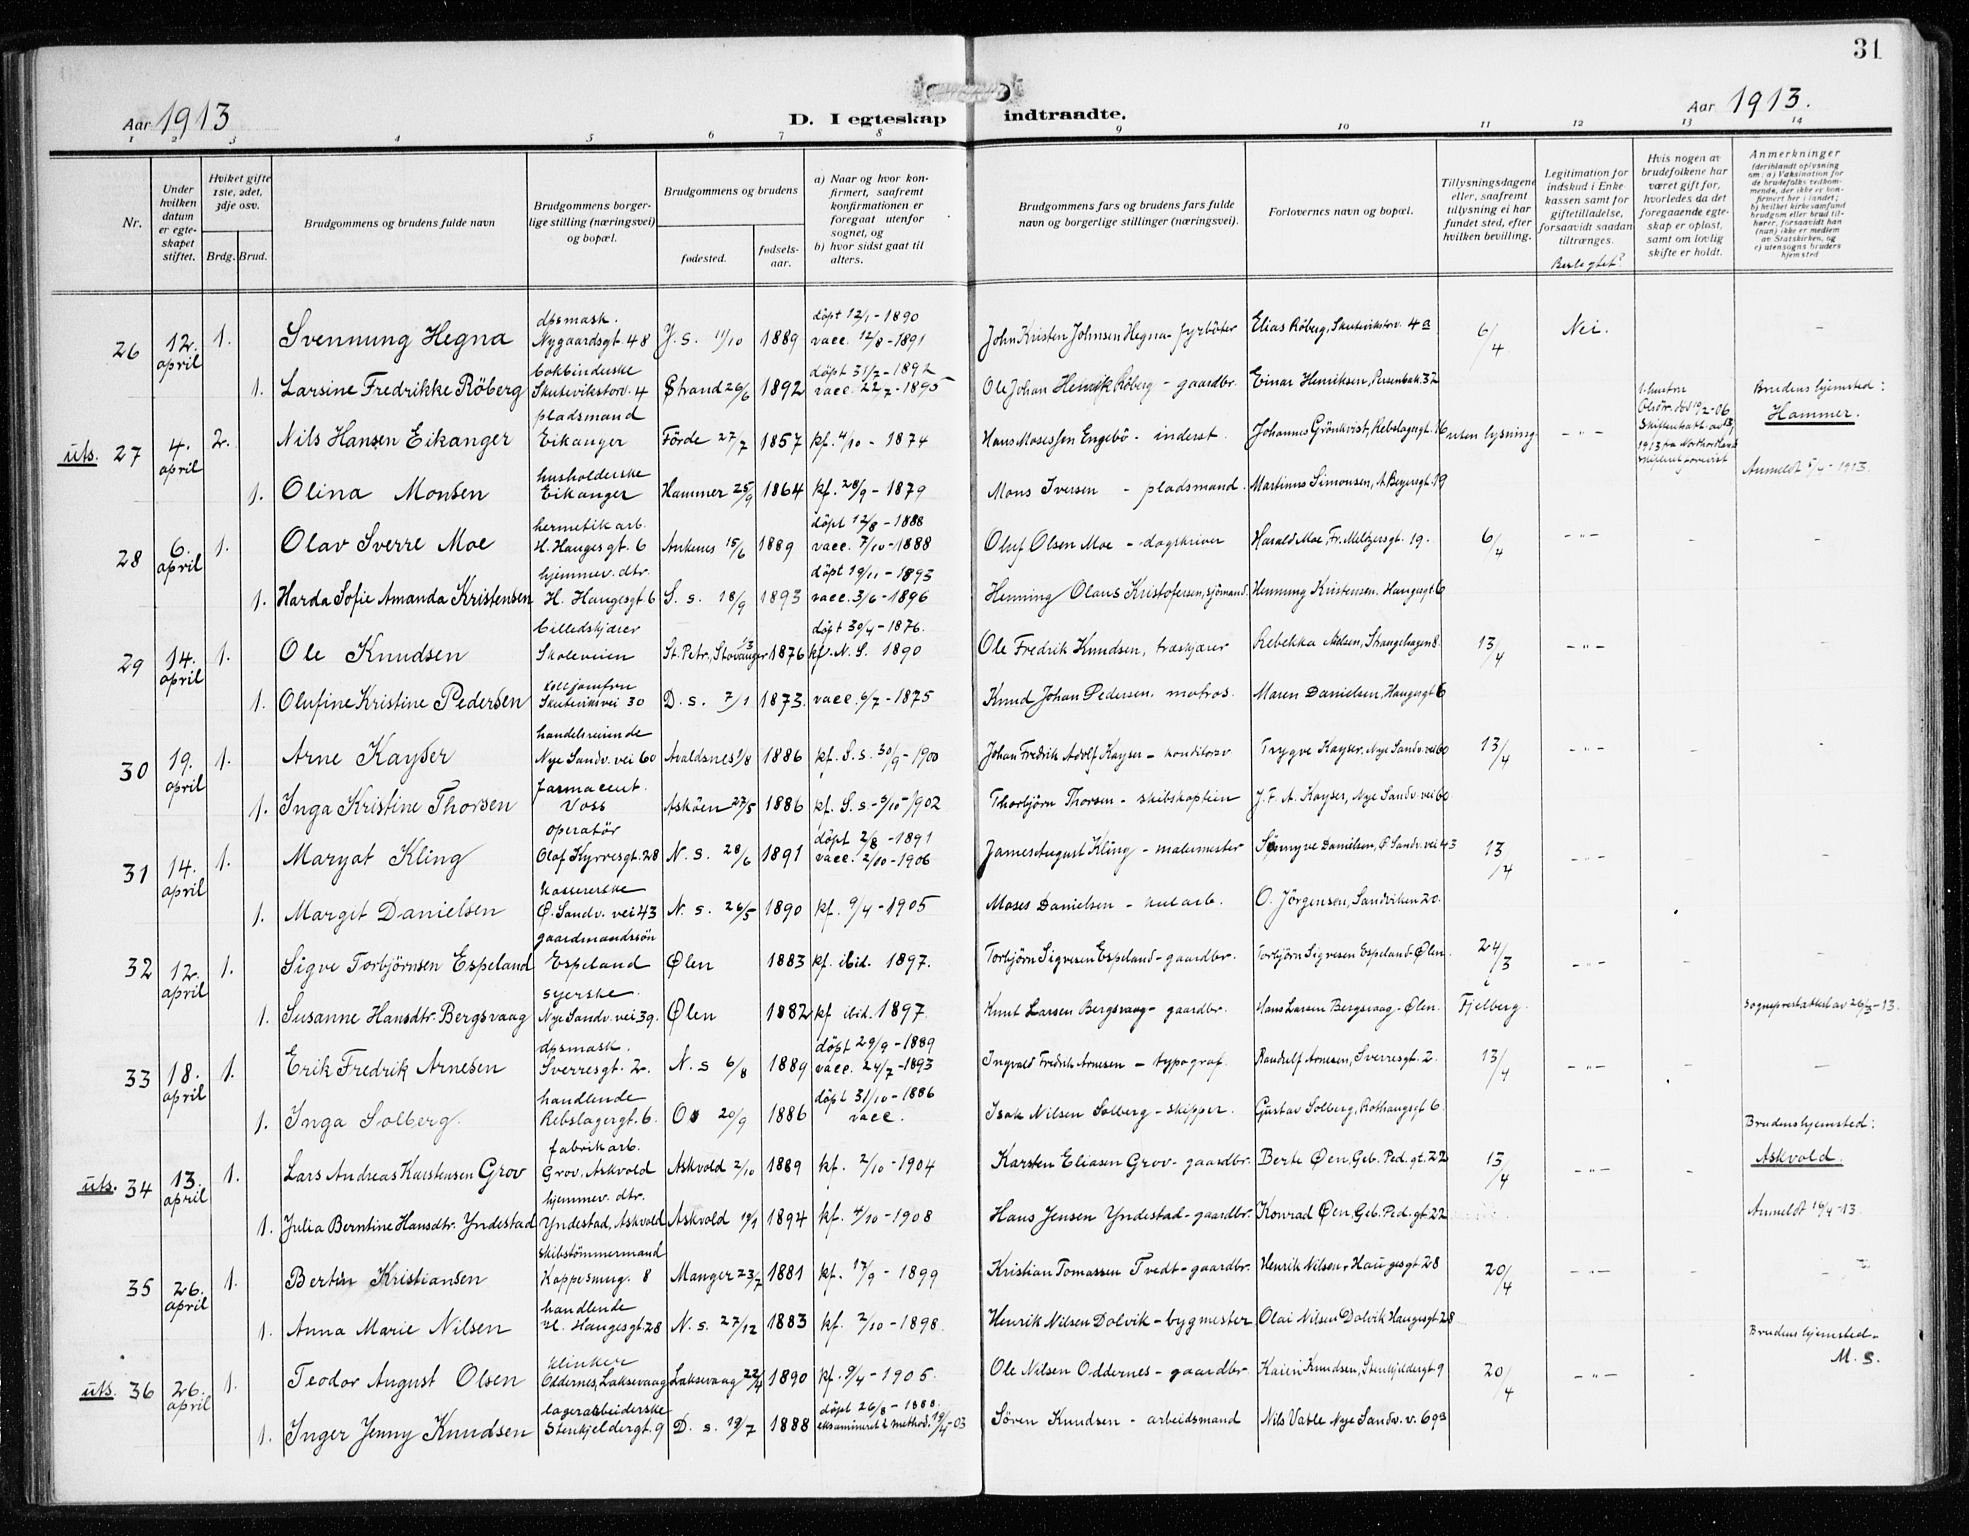 31
Aar 1913
D. I egteskap indtraadte.
Aar 1913.
1 2 3 4 5 6 7 8 9 10 11 12 13 14
Nr.
Under hvilken datum er egteskapet stiftet.
Hviket gifte 1ste, 2det, 3dje osv.
Brdg. Brud.
Brudgommens og brudens fulde navn
Brudgommens borgerlige stilling (næringsvei) og bopæl.
Brudgommens og brudens
fødested.
fødselsaar.
a) Naar og hvor konfirmert, saafremt konfirmationen er foregaat utenfor sognet, og
b) hvor sidst gaat til alters.
Brudgommens fars og brudens fars fulde navn og borgerlige stillinger (næringsvei).
Forlovernes navn og bopæl.
Tillysningsdagene eller, saafremt tillysning ei har fundet sted, efter hvilken bevilling.
Legitimation for indskud i Enkekassen samt for giftetilladelse, forsaavidt saadan tiltrænges.
Hvis nogen av brudefolkene har været gift før, hvorledes da det foregaaende egteskap er opløst, samt om lovlig skifte er holdt.
Anmerkninger (deriblandt oplysning om: a) Vaksination for de brudefolks vedkommende, der ikke er konfirmert her i landet; b) hvilket kirkesamfund brudgom eller brud tilhører, forsaavidt han (hun) ikke er medlem av Statskirken, og c) utensogns bruders hjemsted
26 12. april 1. Svennung Hegna dpsmask. Nygaardsgt. 48 J. s. 11/10 1889 döpt 12/1-1890 vacc. 12/8-1891 John Kristen Johnsen Hegna - fyrböter Elias Röberg, Skutevikstorv. 4a 6/4 Nei. -
1. Larsine Fredrikke Röberg bokbinderske Skutevikstorv. 4 Strand 26/6 1892 döpt 31/7-1892 vacc. 22/7-1895 Ole Johan Henrik Röberg - gaardbr. Einar Henriksen, Persenbak. 32
uts. 27 4. april 2. Nils Hansen Eikanger pladsmand Eikanger Förde 27/7 1857 kf. 4/10 - 1874 Hans Mosessen Engebö - inderst. Johannes Grönkvist, Rebslagergt. 16 uten lysning - " - Brudens hjemsted: Hammer.
1. Olina Monsen husholderske Eikanger Hammer 25/9 1864 kf. 28/9 - 1879 Mons Iversen - pladsmand. Martinus Simonsen, A. Beyersgt. 19 Anmeldt 5/4-1913.
28 6. april 1. Olav Sverre Moe hermetikarb. H. Haugesgt. 6 Ankenes 15/6 1889 döpt 12/8-1888 vacc. 7/10-1888 Oluf Olsen Moe - dagskriver Harald Moe, Fr. Meltzersgt. 19. 6/4 - " - - -
1. Harda Sofie Amanda Kristensen hjemmev. dtr. H. Haugesgt 6 S. s. 18/9 1893 döpt 19/11-1893 vacc. 3/6-1896 Henning Olaus Kristofersen, sjömand. Henning Kristensen. Haugesgt. 6
29 14. april 1. Ole Knudsen billedskjærer Skoleveien St. Petr., Stavanger 1876 döpt 30/4-1876. kf. N. S. 1890 Ole Fredrik Knudsen, træskjærer Rebekka Nielsen, Strangehagen 8 13/4 - " - - -
1. Olufine Kristine Pedersen Skuteviksvei 30 D. s. 7/1 1873. vacc. 6/7-1875 Knud Johan Pedersen. matros. Maren Danielsen, Haugesgt 6
30 19. april 1. Arne Kayser handelsreisende Nye Sandv. vei 60 Avaldsnes 1/8 1886 kf. S. s. 30/9-1900 Johan Fredrik Adolf Kayser - konditor Trygve Kayser, Nye Sandv. vei 60 13/4 - " - - -
1. Inga Kristine Thorsen farmaceut. Voss Asköen 27/5 1886 kf. S. s. - 5/10-1902 Thorbjörn Thorsen - skibskaptein J. F. A. Kayser, Nye Sandv. vei 60
31 14. april 1. Maryat Kling operatör Olaf Kyrresgt. 28 N. s. 28/6 1891 döpt 2/8-1891 vacc. 2/10-1906 James August Kling - malermester Synnyve Danielsen, Ø. Sandv. vei 43 13/4 - " - -
1. Margit Danielsen kassererske Ø. Sandv. vei 43 N. s. 26/5 1890 kf. 9/4-1905 Moses Danielsen - kularb. O. Jörgensen, Sandviken 20.
32 12. april 1. Sigve Torbjörnsen Espeland gaardmandssön Espeland Ølen 1883 kf. ibid. 1897. Torbjörn Sigvesen Espeland - gaardbr. Torbjörn Sigvesen Espeland Ølen. 24/3 - " - - -
1. Susanne Hansdtr. Bergsvaag syerske. Nye Sandv. vei 39. Ølen 1882 kf ibid. 1897. Knut Larsen Bergsvaag - gaardbr. Hans Larsen Bergsvaag - Ølen. i Fjelberg. Sogneprestattest av 26/3-13.
33 18. april 1. Erik Fredrik Arnesen dpsmask. Sverresgt. 2. N. s 6/8 1889 döpt 29/9-1889 vacc. 24/7-1893 Ingvald Fredrik Arnesen - typograf. Randulf Arnesen, Sverresgt. 2. 13/4 - " - - -
1. Inga Solberg. handlende Rebslagergt. 6. Os 20/9 1886 döpt 31/10-1886 vacc. Isak Nilsen Solberg - skipper. Gustav Solberg, Rothaugsgt 6.
uts. 34 13. april 1. Lars Andreas Karstensen Grov fabrikarb. Grov, Askvold Askvold 2/10 1889 kf. 2/10-1904 Karsten Eliasen Grov - gaardbr. Berte Øen, Geb. Ped. gt. 22 13/4 - " - - Brudens hjemsted: Askvold.
1. Julia Berntine Hansdtr. Yndestad hjemmev. dtr. Yndestad, Askvold Askvold 19/1 1894 kf. 4/10-1908 Hans Jensen Yndestad - gaardbr. Konrad Øen, Geb. Ped. gt. 22 Anmeldt 16/4-13.
35 26. april 1. Bertin Kristiansen skibstömmermand Kappesmug. 8 Manger 23/7 1881 kf. 17/9 - 1899 Kristian Tomassen Tvedt - gaardbr. Henrik Nilsen, Haugesgt 28 20/4 - " - - -
1. Anna Marie Nilsen handlende H. Haugesgt 28 N. s. 27/12 1883 kf. 2/10-1898. Henrik Nilsen Dolvik - bygmester Olai Nilsen Dolvik Haugesgt 28
uts. 36 26. april 1. Teodor August Olsen klinker Oddernes, Laksevaag Laksevaag 22/4 1890 kf. 9/4-1905. Ole Nilsen Oddernes - gaardbr. Kaien Knudsen, Stenkjeldergt. 9 20/4 - " - - Brudens hjemsted - M. S.
1. Inger Jenny Knudsen lagerarbeiderske Stenkjeldergt. 9 D. s. 19/7 1888 döpt 26/8-1888. eksamineret i method. 19/4-03 Sören Knudsen - arbeidsmand Nils Vatle Nye Sandv. v. 69a